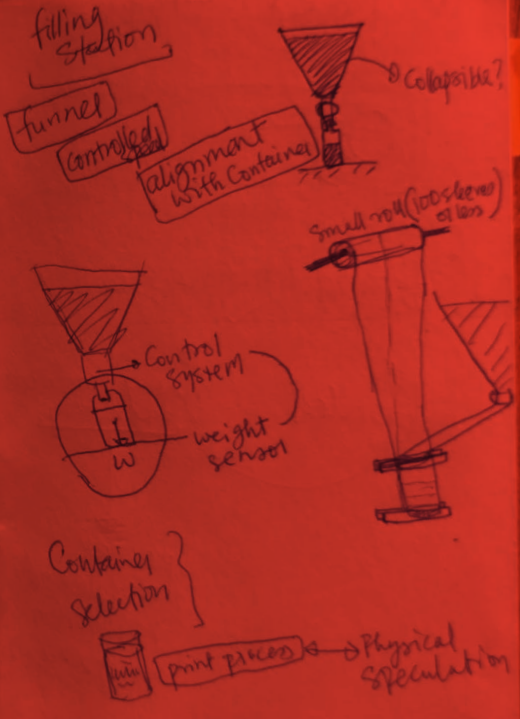 filling
station
funnel
controlled
alignment
with container
Collapsible?
Small roll (100
or less)
Control
system
weight
sensor
W
Container
selection
print process
Physical
speculation